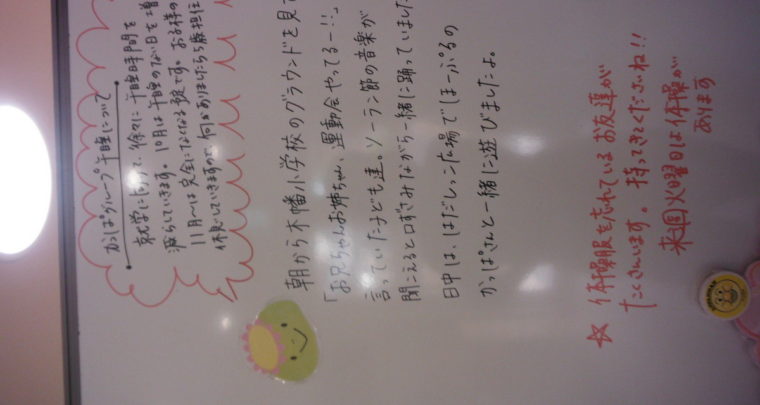 かっぱグループ午睡について
就学に向けて、徐々に午睡時間を
減らしていきます。10月は午睡のない日を増
11月〜は完全になくなる予定です。お子様の
何かありましたら5歳担任
朝から木幡小学校のグラウンドを見て
「お兄ちゃんお姉ちゃん、運動会やってるー!!」
言っていた子ども達。ソーラン節の音楽が
聞こえると口ずさみながら一緒に踊っていました
日中は、はだしっこ広場でほーぷるの
かっぱさんと一緒に遊びましたよ。
☆体操服を忘れているお友達が
たくさんいます。持ってきてくださいね!!
来週火曜日は体操が
あります